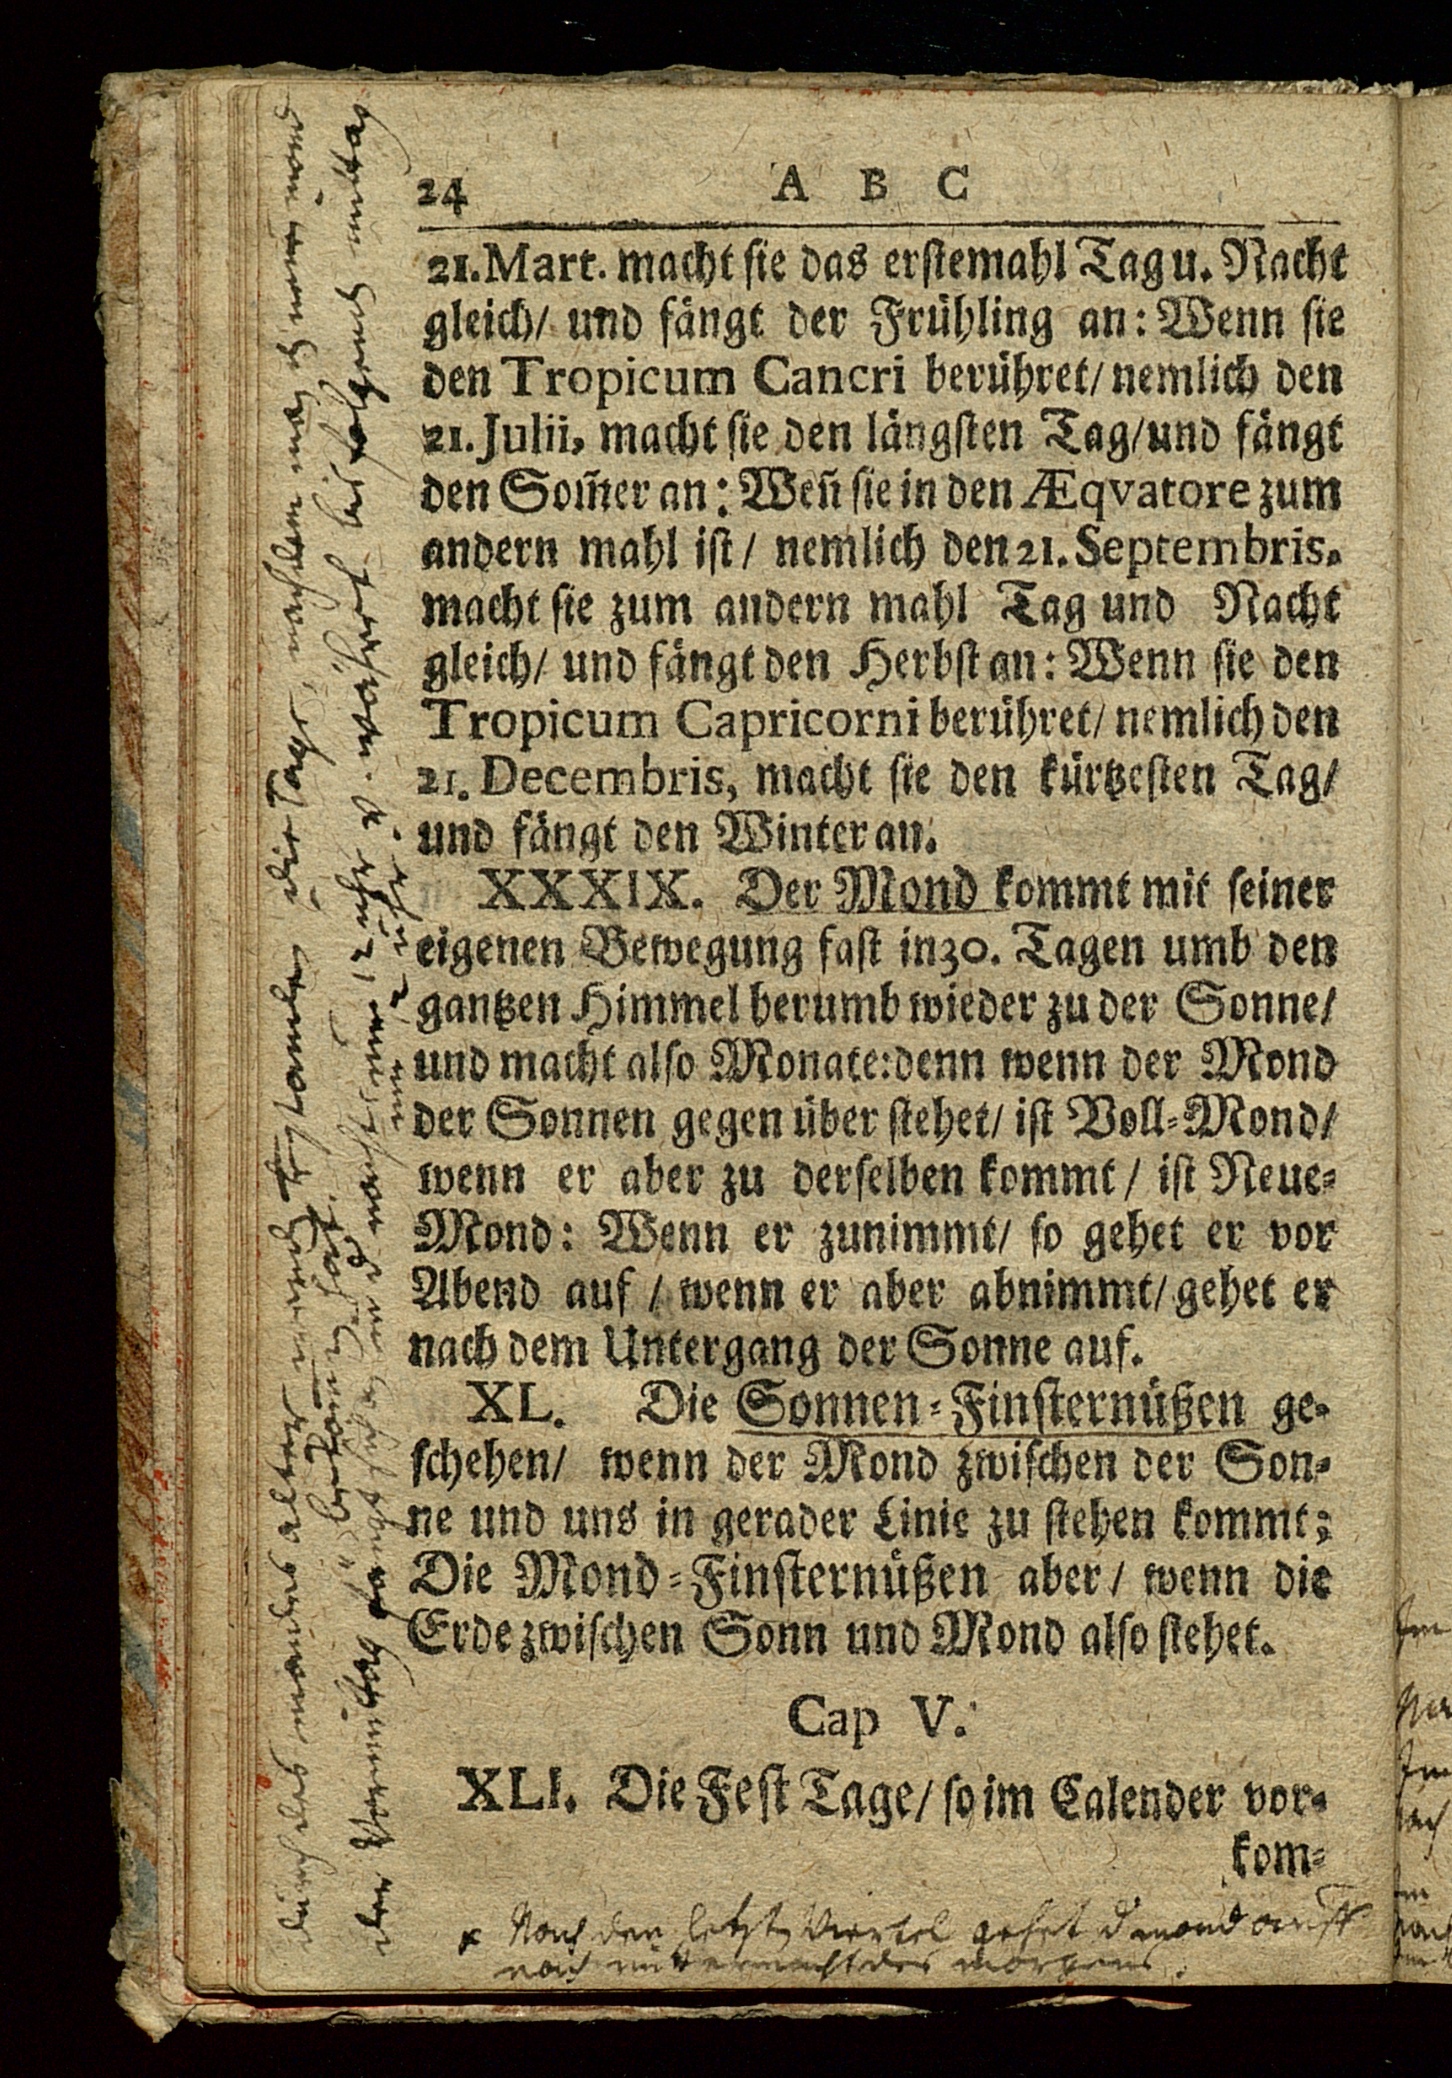 24 A B C
21. Mart. macht sie das erstemahl Tag u. Nacht
gleich/ und fängt der Frühling an: Wenn sie
den Tropicum Cancri berühret/ nemlich den
21. Julii, macht sie den längsten Tag/ und fängt
den Som̃er an: Weñ sie in den Æqvatore zum
andern mahl ist/ nemlich den 21. Septembris.
macht sie zum andern mahl Tag und Nacht
gleich/ und fängt den Herbst an: Wenn sie den
Tropicum Capricorni berühret/ nemlich den
21. Decembris, macht sie den kürtzesten Tag/
und fängt den Winter an.
XXXIX. Der Mond kommt mit seiner
eigenen Bewegung fast in 30. Tagen umb den
gantzen Himmel herumb wieder zu der Sonne/
und macht also Monate: denn wenn der Mond
der Sonnen gegen über stehet/ ist Voll-Mond/
wenn er aber zu derselben kommt/ ist Neue-
Mond: Wenn er zunimmt/ so gehet er vor
Abend auf/ wenn er aber abnimmt/ gehet er
nach dem Untergang der Sonne auf.
XL. Die Sonnen-Finsternüßen ge-
schehen/ wenn der Mond zwischen der Son-
ne und uns in gerader Linie zu stehen kommt;
Die Mond-Finsternüßen aber/ wenn die
Erde zwischen Sonn und Mond also stehet.
Cap V.
XLI. Die Fest Tage/ so im Calender vor-
kom-
Nach den letzt Viertel gehet d mond auff
nach mitternacht des morgens.
durch des mondes alter die Tage, nachdem neuen mond